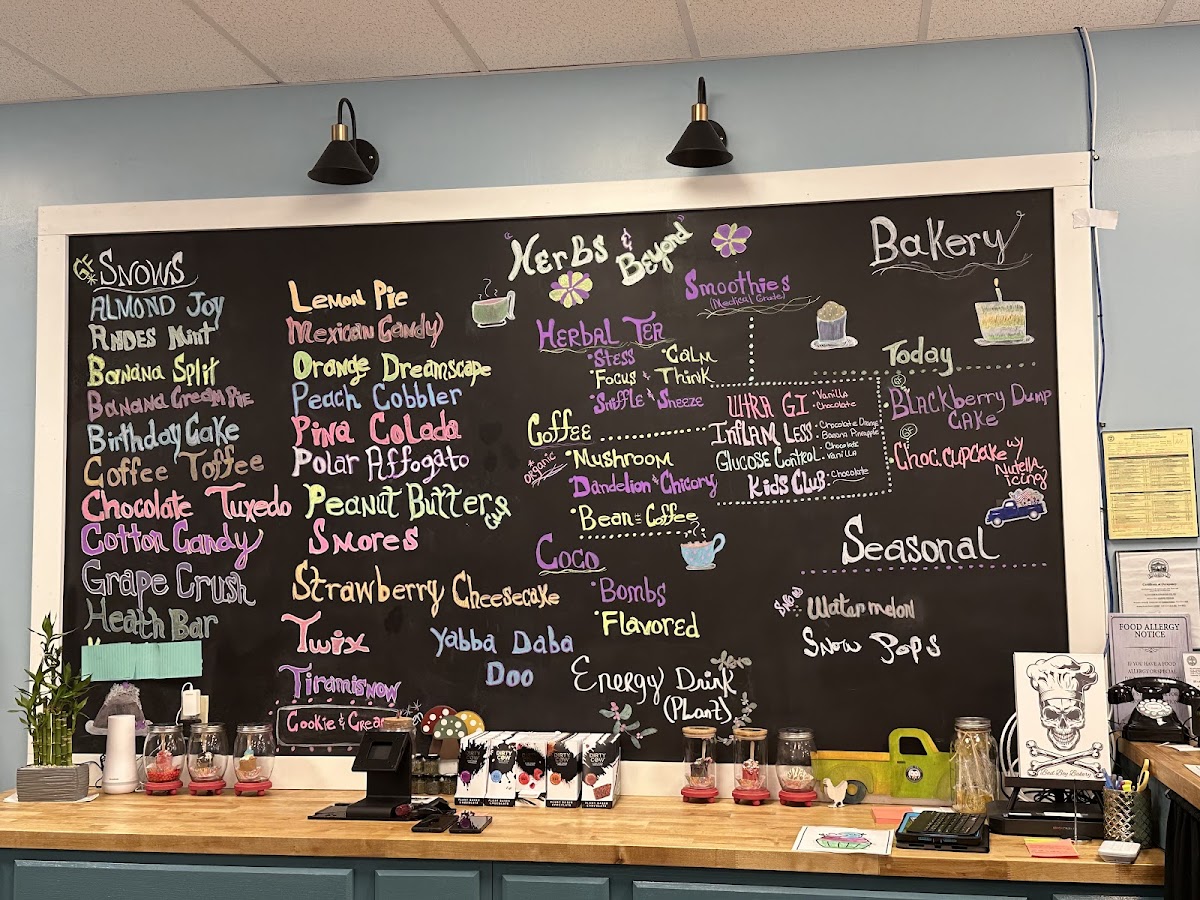 GF SNOWS
ALMOND JOY
ANDES MINT
BANANA SPLIT
BANANA CREAM PIE
BIRTHDAY CAKE
COFFEE TOFFEE
CHOCOLATE TUXEDO
COTTON CANDY
GRAPE CRUSH
HEATH BAR
LEMON PIE
MEXICAN CANDY
ORANGE DREAMSCAPE
PEACH COBBLER
PINA COLADA
POLAR AFFOGATO
PEANUT BUTTER CUP
SMORES
STRAWBERRY CHEESECAKE
TWIX
TIRAMISNOW
COOKIE & CREAM
YABBA DABA
DOO
"HERBS & BEYOND"
HERBAL TEA
• STESS • CALM
• FOCUS & THINK
• SNIFFLE & SNEEZE
COFFEE
ORGANIC
• MUSHROOM
• DANDELION & CHICORY
• BEAN COFFEE
COCO
• BOMBS
• FLAVORED
ENERGY DRINK
(PLANT)
SMOOTHIES
(MEDICAL GRADE)
ULTRA GI • VANILLA
• CHOCOLATE
INFLAM LESS • CHOCOLATE ORANGE
• BANANA PINEAPPLE
GLUCOSE CONTROL • CHOCOLATE
• VANILLA
KIDS CLUB • CHOCOLATE
BAKERY
TODAY
GF
BLACKBERRY DUMP
CAKE
GF
CHOC. CUPCAKE W/
NUTELLA
ICING
SEASONAL
SNOW
WATERMELON
SNOW POPS
FOOD ALLERGY
NOTICE
IF YOU HAVE A FOOD
ALLERGY OR SPECIAL
Bad Boy Bakery
DIRTY COW